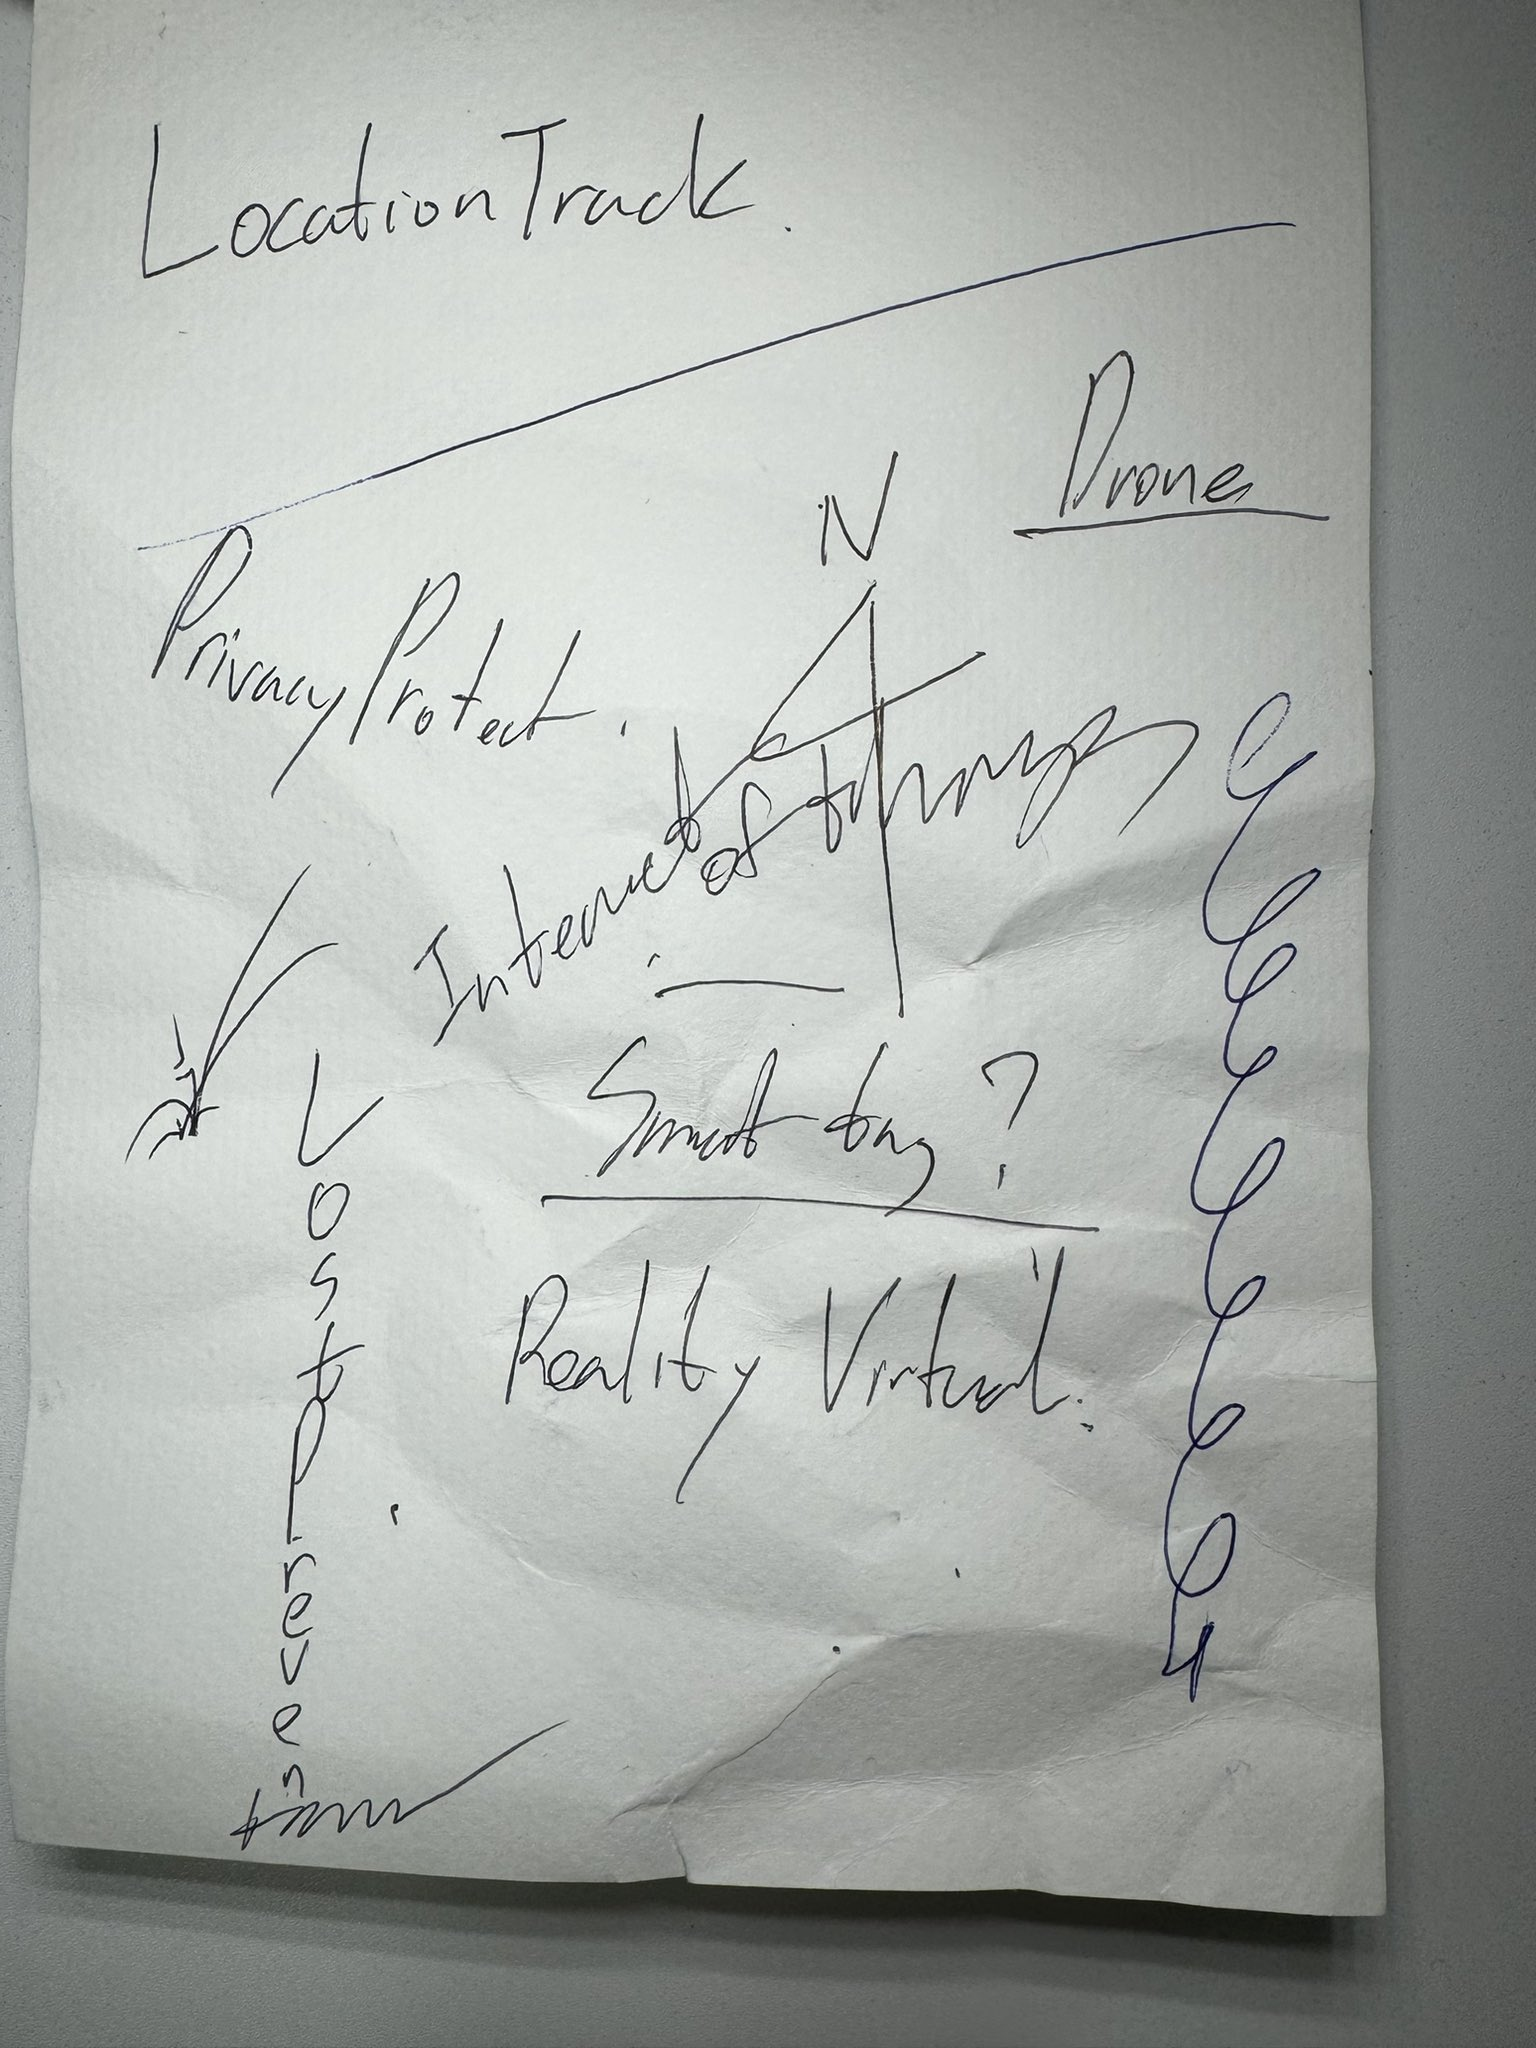 LocationTrack.
Drone
N
PrivacyProtect.
Internet of things
Smart tag?
Reality Virtual.
LostPrevent